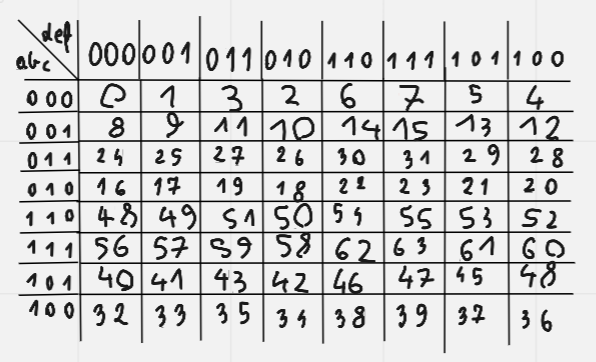 def
abc 000 001 011 010 110 111 101 100
000 0 1 3 2 6 7 5 4
001 8 9 11 10 14 15 13 12
011 24 25 27 26 30 31 29 28
010 16 17 19 18 22 23 21 20
110 48 49 51 50 54 55 53 52
111 56 57 59 58 62 63 61 60
101 40 41 43 42 46 47 45 48
100 32 33 35 34 38 39 37 36